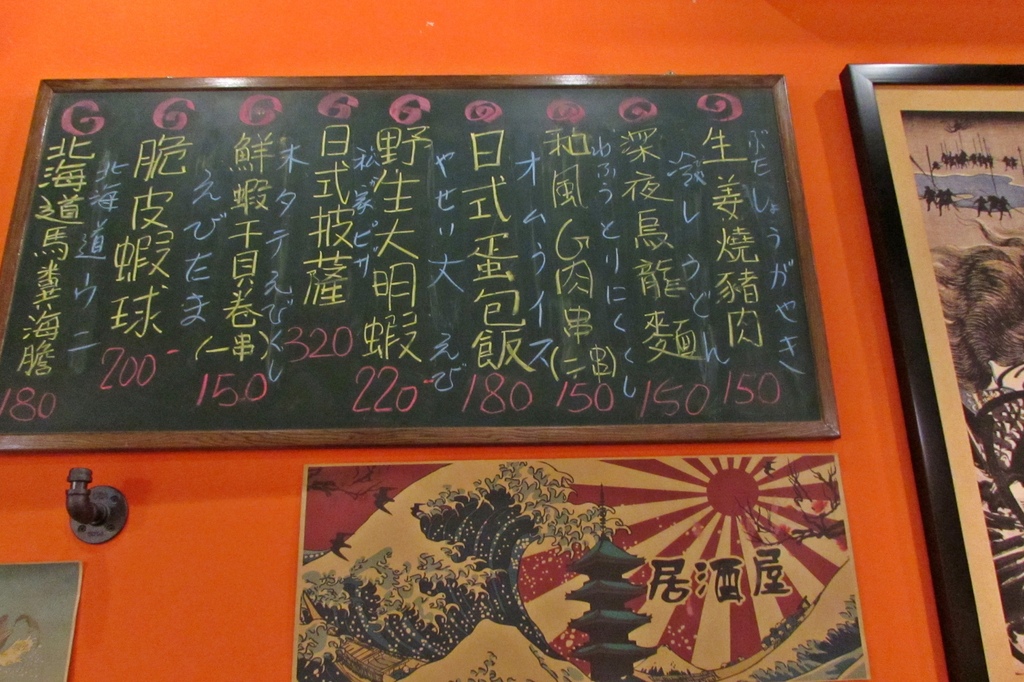 生姜燒豬肉
ぶたしょうがやき
150
深夜烏龍麵
冷しうどん
150
和風G肉串(二串)
わふうとりにくくし
150
日式蛋包飯
オムライス
180
野生大明蝦
やせい大えび
220
日式披薩
ピザ
320
鮮蝦干貝卷(一串)
ホタテえびくし
150
脆皮蝦球
えびたま
200
北海道馬糞海膽
北海道ウニ
180
居酒屋